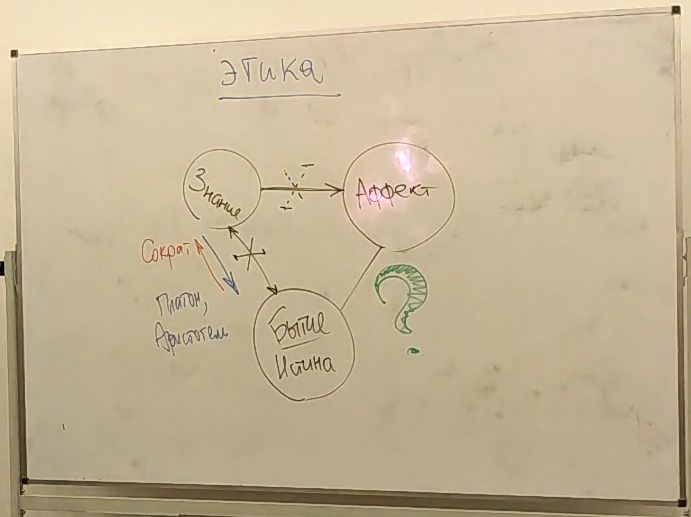 ЭТИКА
Знание
Аффект
Сократ
Платон,
Аристотель
Бытие
Истина
?